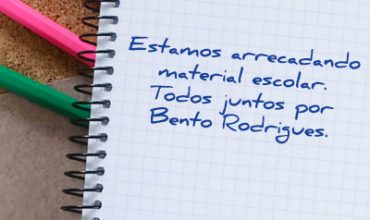 Estamos arrecadando
material escolar.
Todos juntos por
Bento Rodrigues.